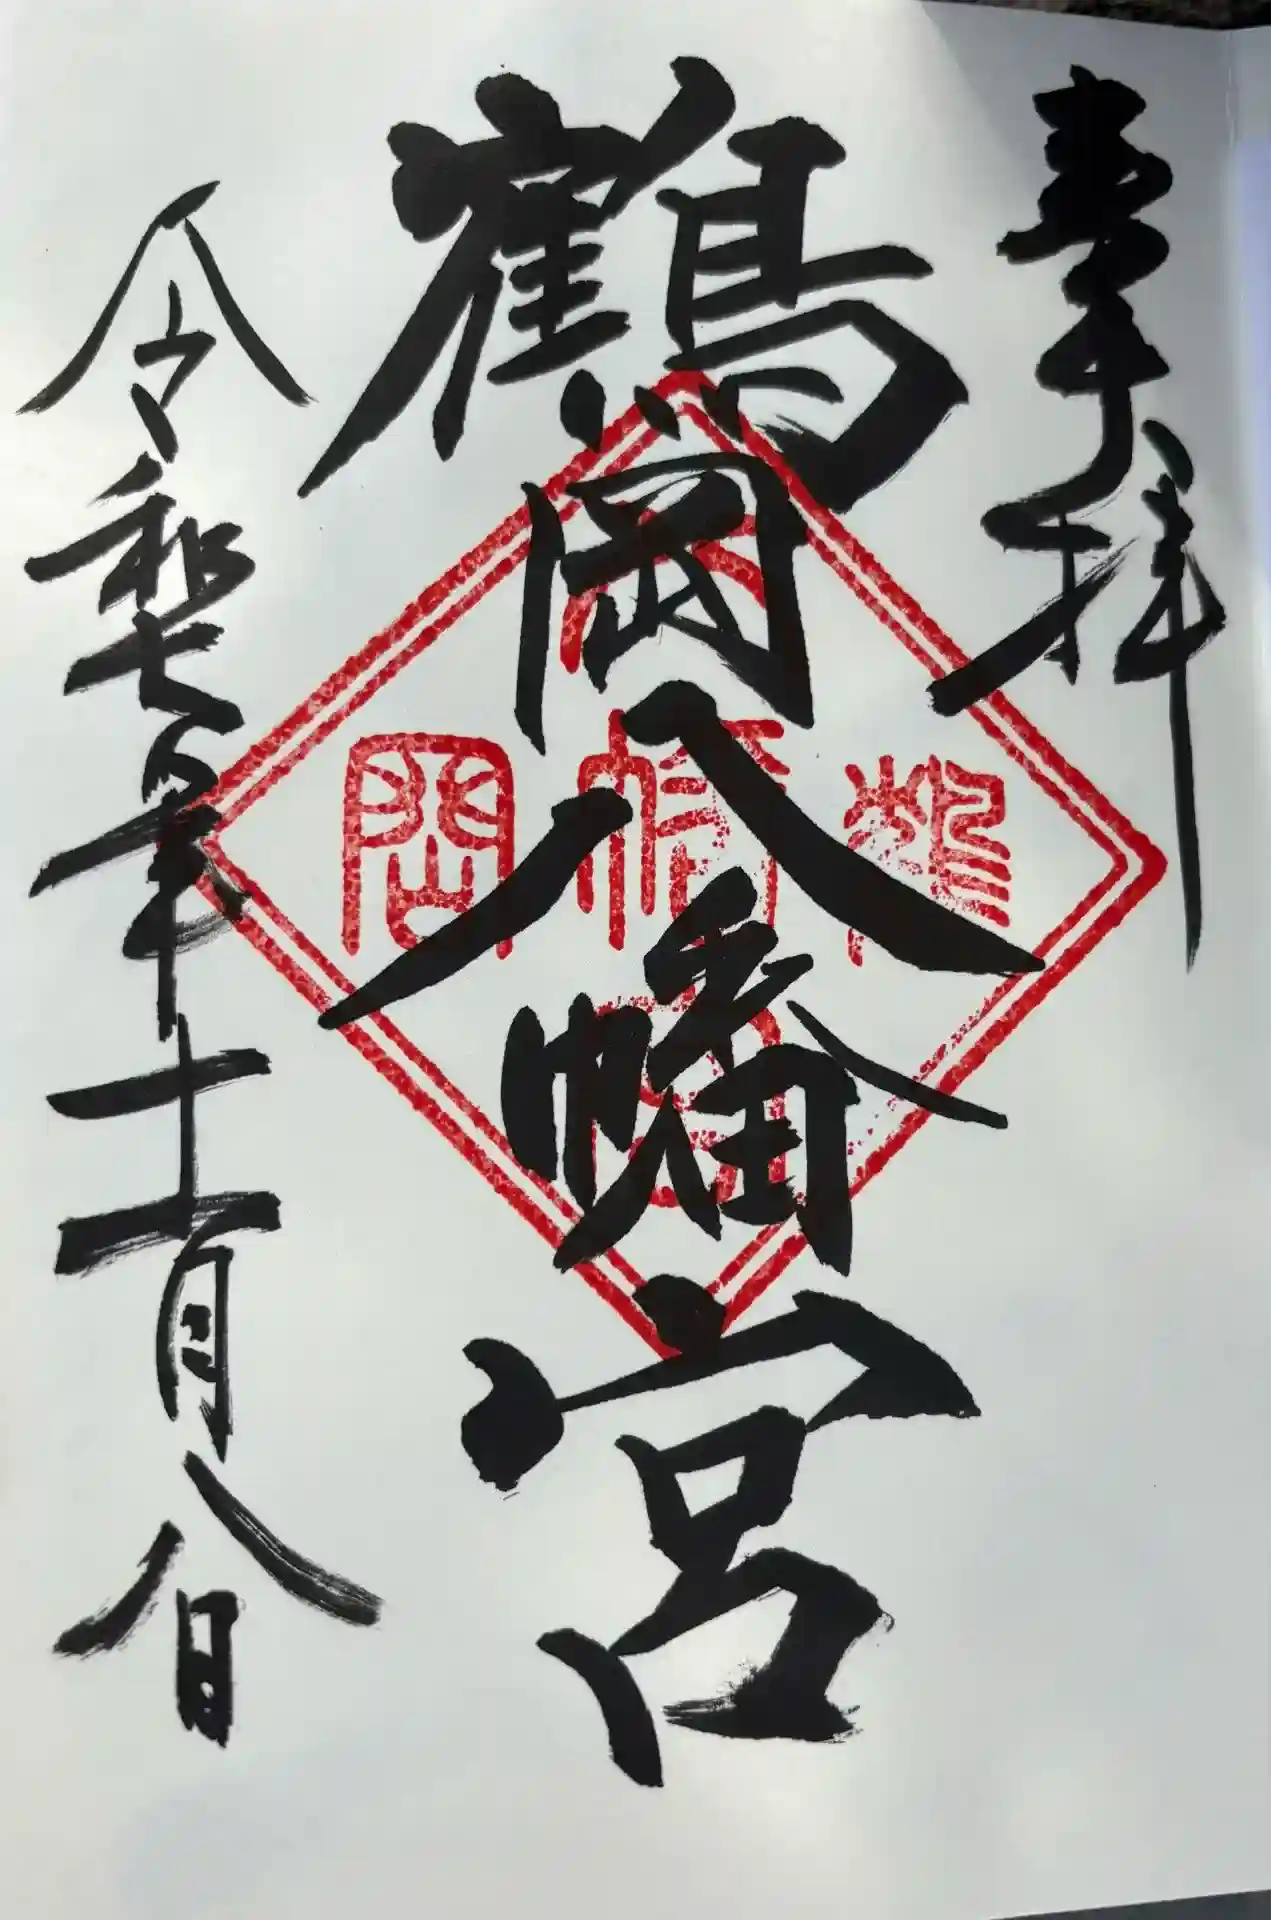 奉拝
鶴岡八幡宮
令和七年十一月八日
鶴岡八幡宮